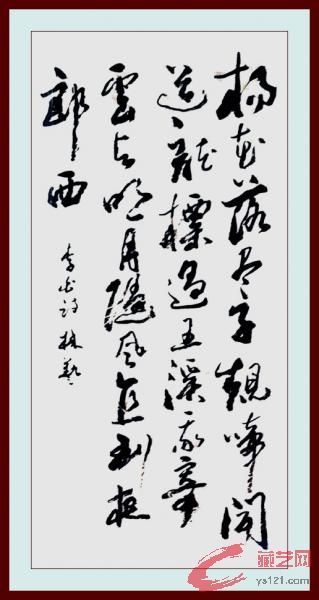 杨花落尽子規啼闻
道龍標過五溪我寄
愁心与明月随风直到夜
郎西
李白诗
藏艺网
ys121.com